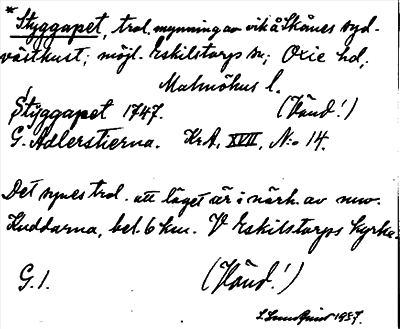 * Styggapet, trol. mynning av vik å Skånes syd-
västkust; möjl. Eskilstorps sn; Oxie hd,
Malmöhus l.
Styggapet 1747. (Vänd!)
G. Adlerstierna. KrA. XVII, N:o 14.
Det synes trol. att läget är i närh. av nuv.
Kuddarna, bel. 6 km. V Eskilstorps kyrka.
G.1. (Vänd!)
1937.